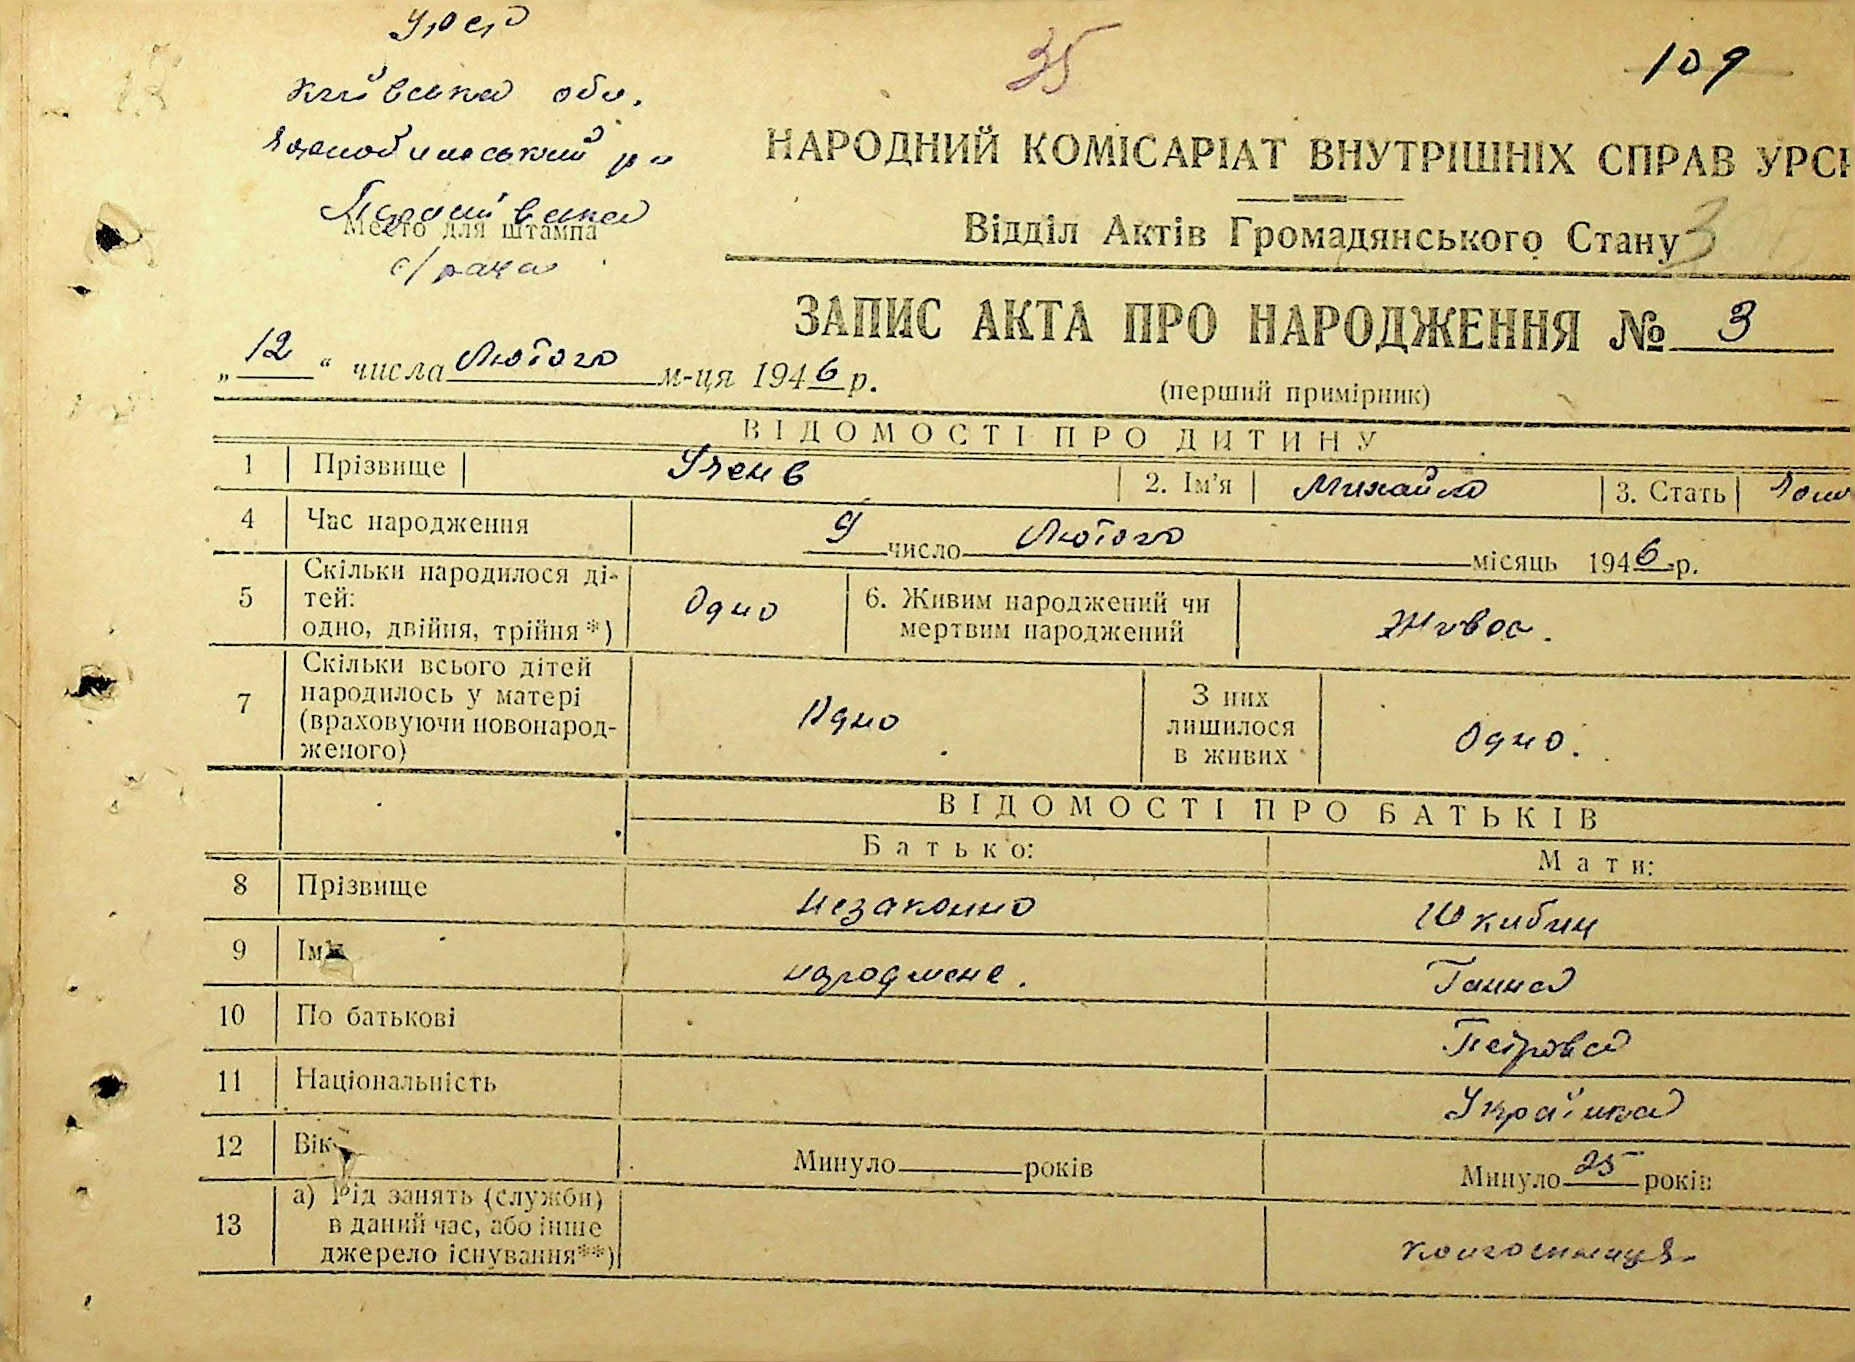 УРСР
35
109
Київська обл.
р-н
НАРОДНИЙ КОМІСАРІАТ ВНУТРІШНІХ СПРАВ УРСР
Место для штампа
с/рада
Відділ Актів Громадянського Стану
3
ЗАПИС АКТА ПРО НАРОДЖЕННЯ № 3
„12“ числа Лютого м-ця 1946 р.
(перший примірник)
ВІДОМОСТІ ПРО ДИТИНУ
1 Прізвище 2. Ім'я Михайло 3. Стать
4 Час народження 9 число Лютого місяць 1946 р.
5 Скільки народилося ді-
тей:
одно, двійня, трійня*) Одно 6. Живим народжений чи
мертвим народжений Живое.
7 Скільки всього дітей
народилось у матері
(враховуючи новонарод-
женого) Одно З них
лишилося
в живих Одно.
ВІДОМОСТІ ПРО БАТЬКІВ
Батько: Мати:
8 Прізвище незаконно
9 Ім'я народжене. Ганна
10 По батькові Петровна
11 Національність Українка
12 Вік Минуло років Минуло 25 років
13 а) Рід занять (служби)
в даний час, або інше
джерело існування**) колгоспниця